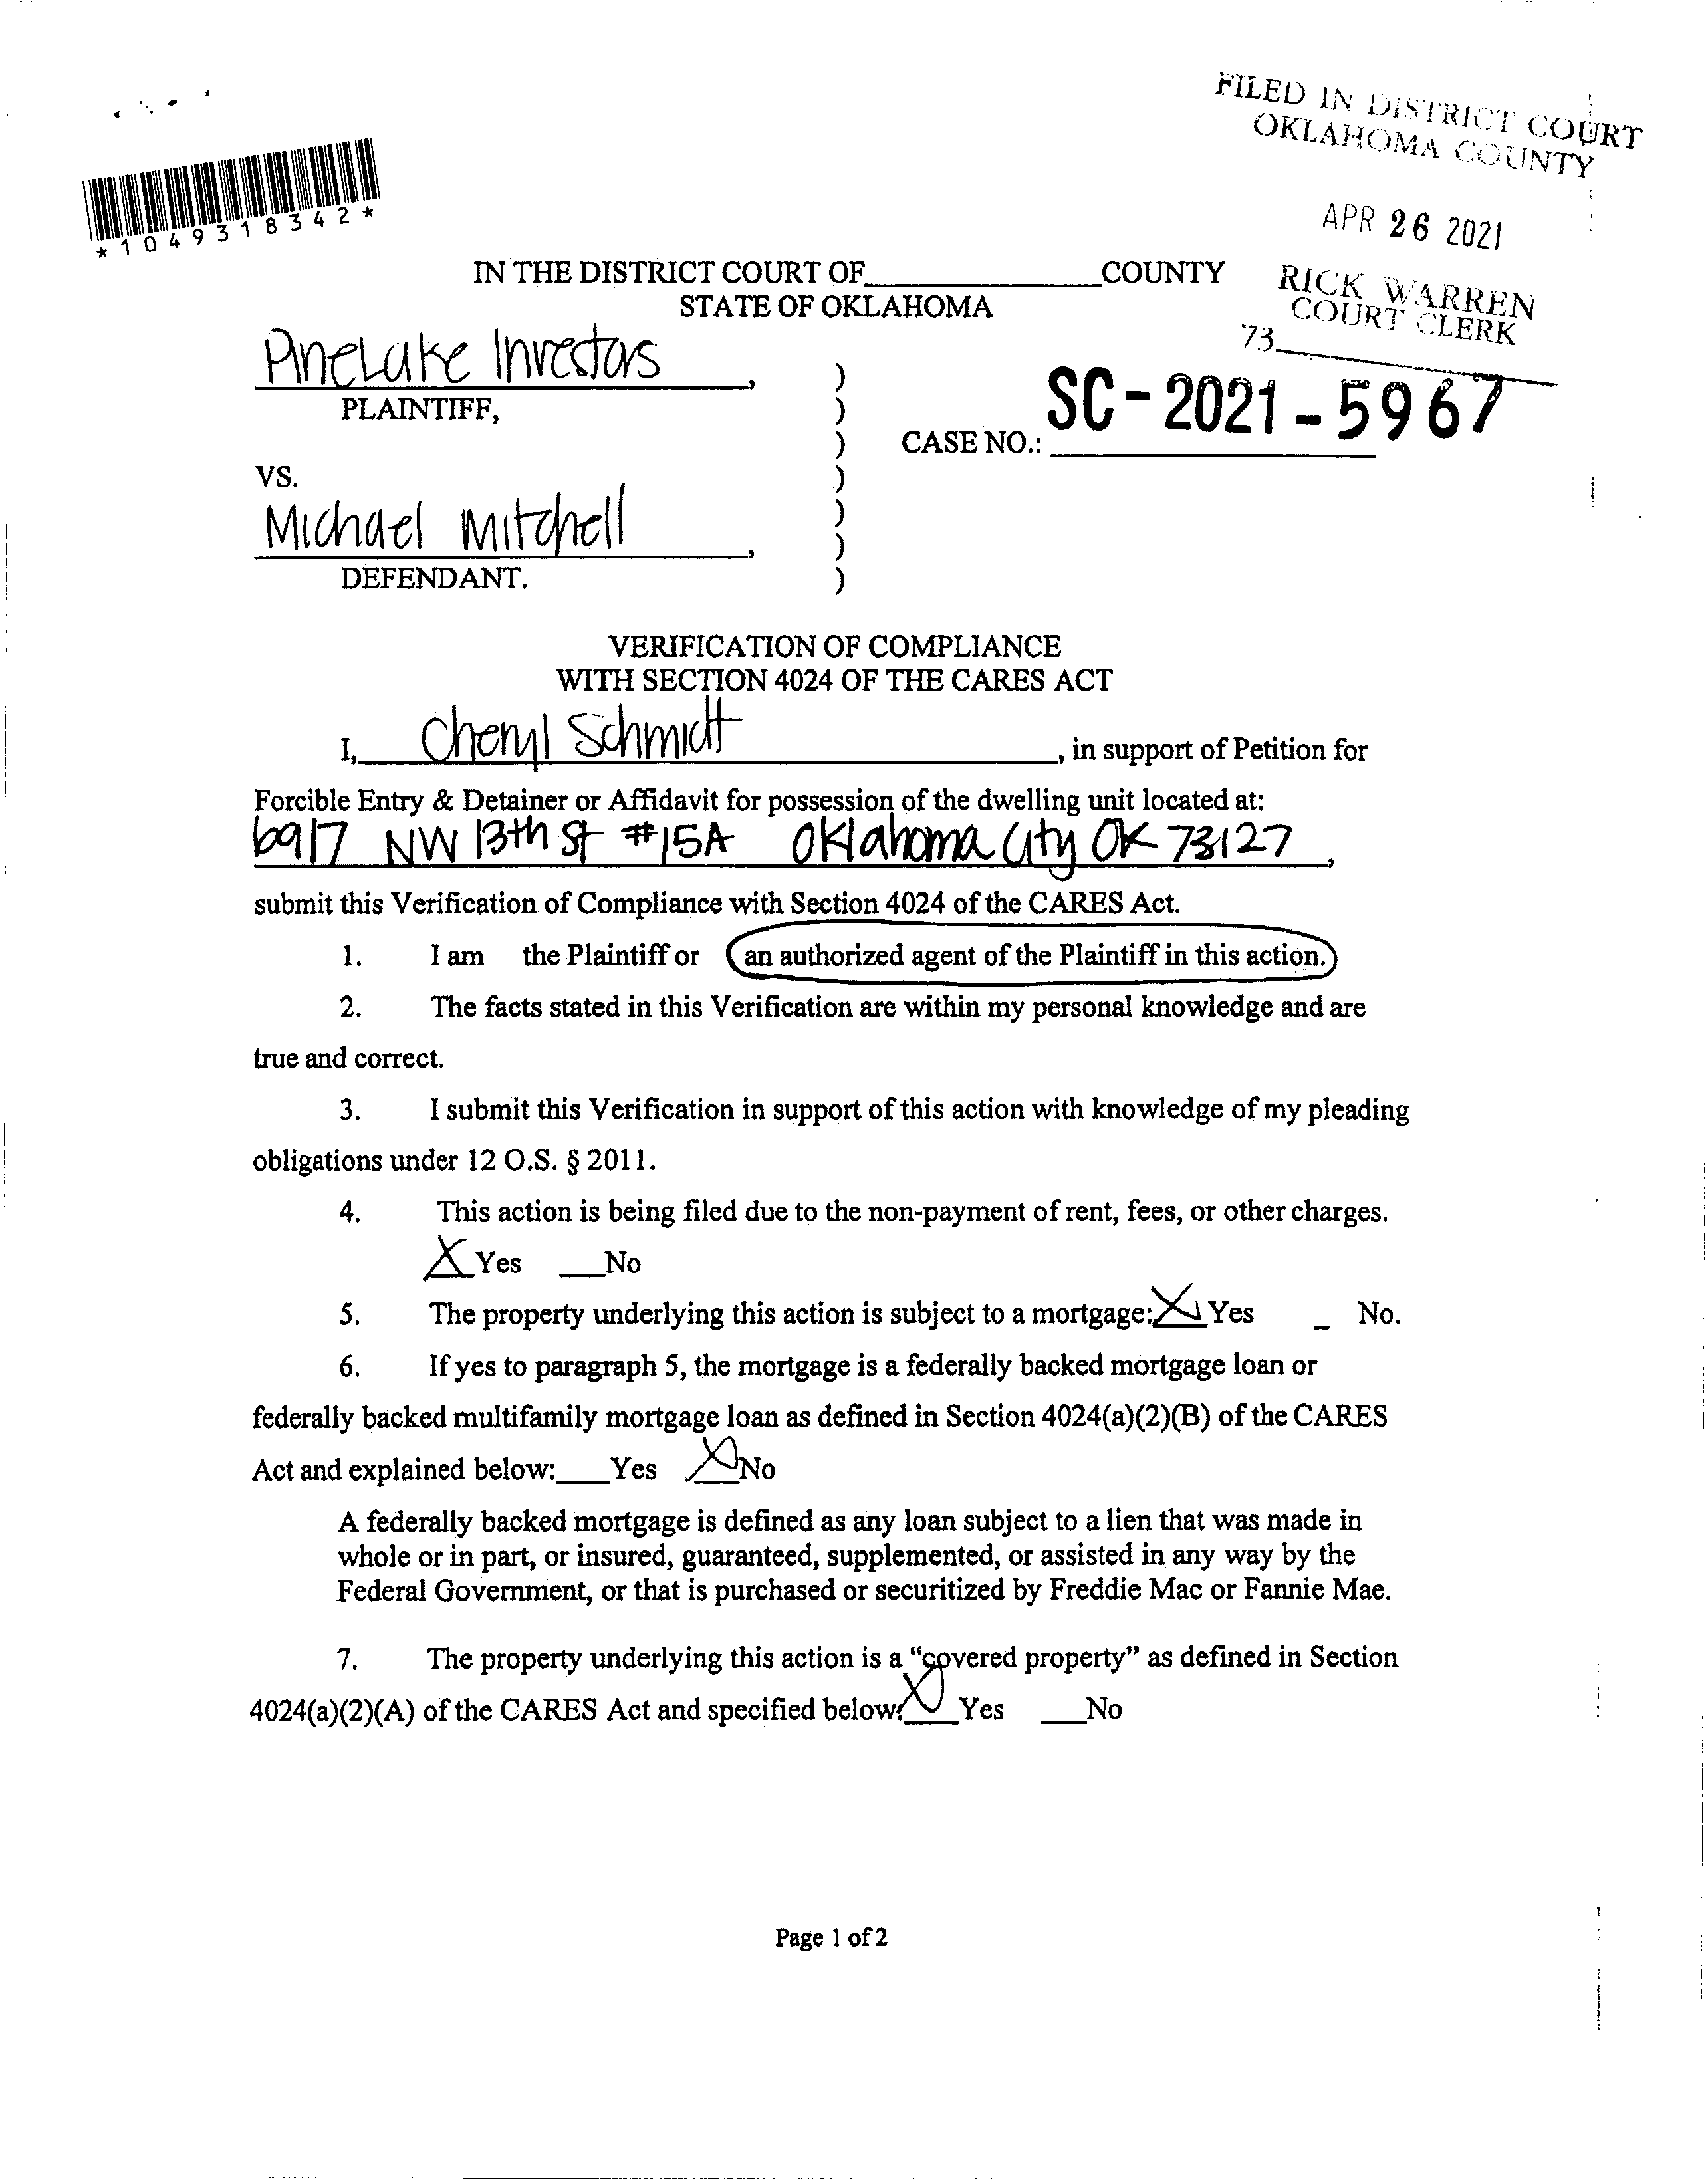 FILED IN DISTRICT COURT
OKLAHOMA COUNTY
APR 26 2021
RICK WARREN
COURT CLERK
73
*1049318342*
IN THE DISTRICT COURT OF______________COUNTY
STATE OF OKLAHOMA
PineLake Investors,
PLAINTIFF,
)
)
)
)
)
)
)
SC-2021-5967
CASE NO.:
VS.
Michael Mitchell,
DEFENDANT.
VERIFICATION OF COMPLIANCE
WITH SECTION 4024 OF THE CARES ACT
I, Cheryl Schmidt, in support of Petition for
Forcible Entry & Detainer or Affidavit for possession of the dwelling unit located at:
6917 NW 13th St #15A Oklahoma City OK 73127,
submit this Verification of Compliance with Section 4024 of the CARES Act.
1. I am the Plaintiff or an authorized agent of the Plaintiff in this action.
2. The facts stated in this Verification are within my personal knowledge and are
true and correct.
3. I submit this Verification in support of this action with knowledge of my pleading
obligations under 12 O.S. § 2011.
4. This action is being filed due to the non-payment of rent, fees, or other charges.
X Yes ___No
5. The property underlying this action is subject to a mortgage: X Yes _ No.
6. If yes to paragraph 5, the mortgage is a federally backed mortgage loan or
federally backed multifamily mortgage loan as defined in Section 4024(a)(2)(B) of the CARES
Act and explained below:___Yes X No
A federally backed mortgage is defined as any loan subject to a lien that was made in
whole or in part, or insured, guaranteed, supplemented, or assisted in any way by the
Federal Government, or that is purchased or securitized by Freddie Mac or Fannie Mae.
7. The property underlying this action is a "covered property" as defined in Section
4024(a)(2)(A) of the CARES Act and specified below: X Yes ___No
Page 1 of 2